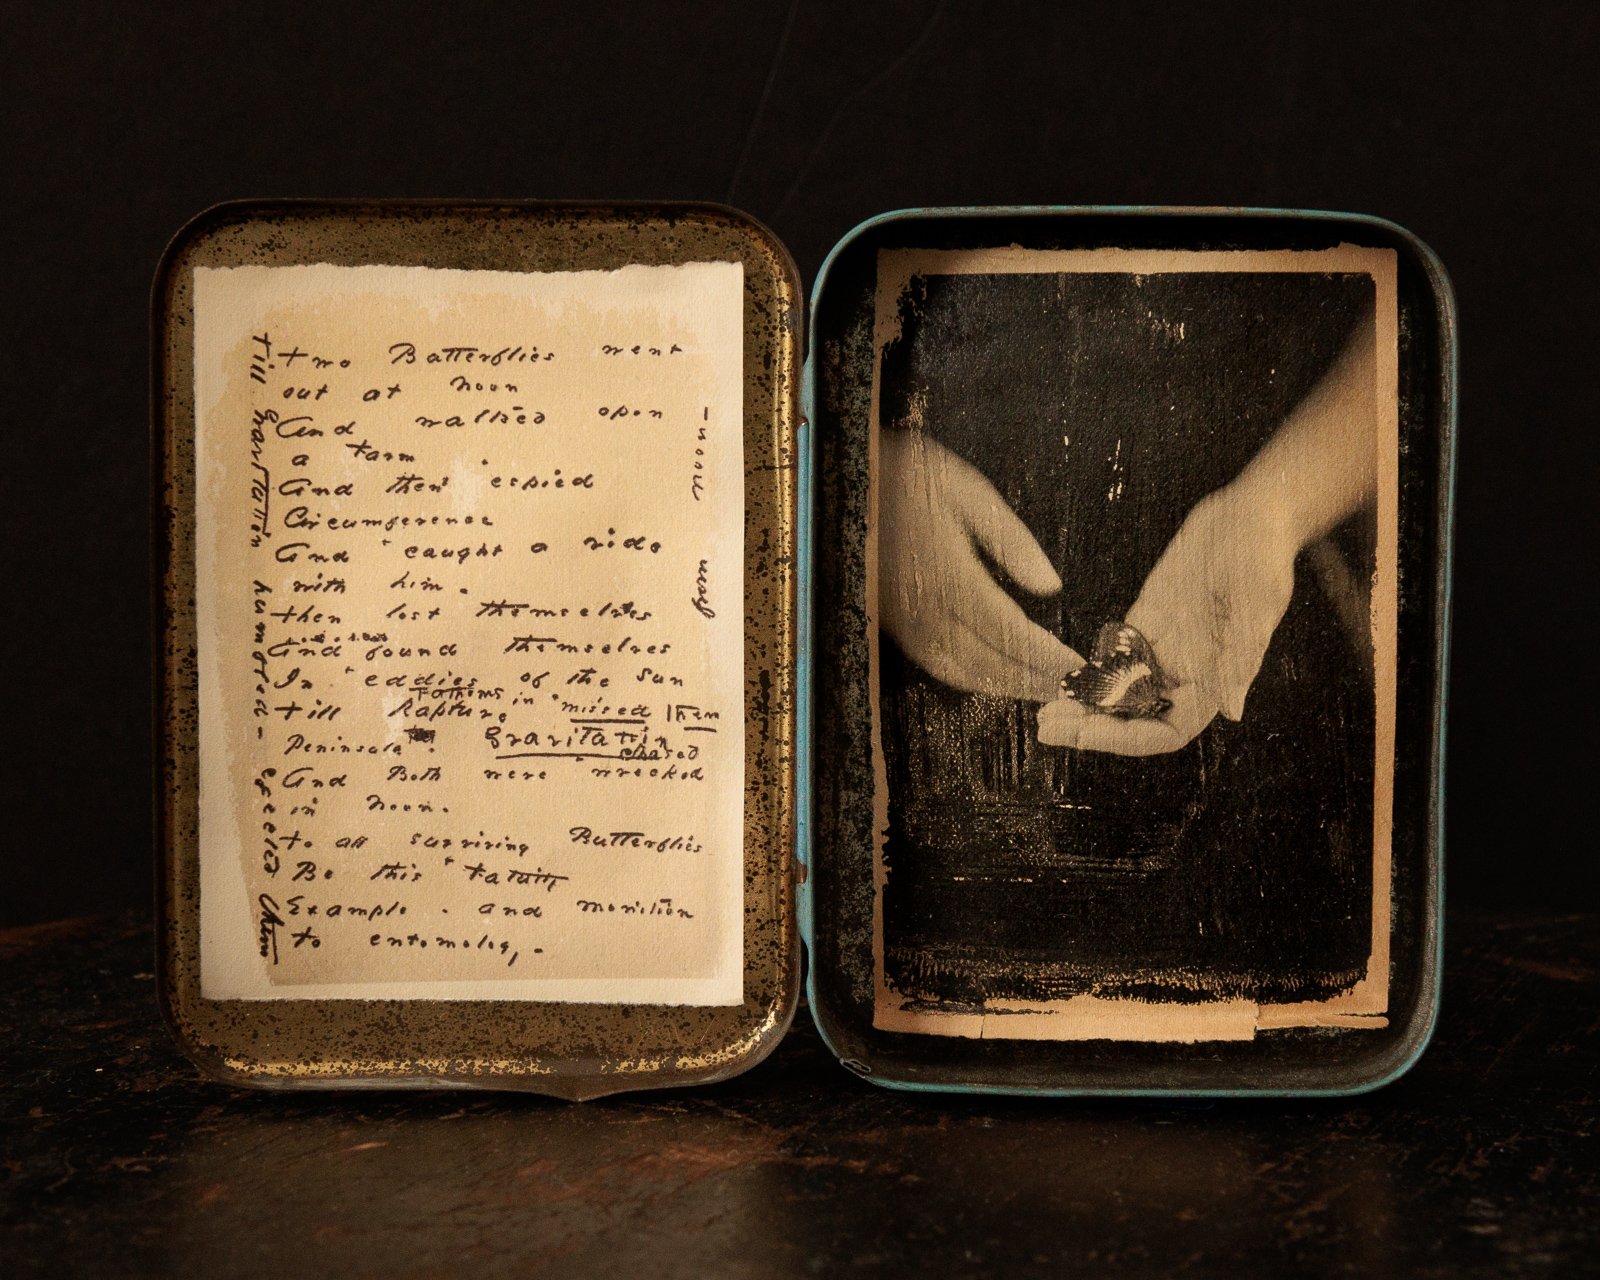 Two Butterflies went
out at Noon
And waltzed opon
a Farm
And then espied
Circumference
And caught a ride
with him.
Then lost themselves
And found themselves
In eddies of the Sun
Fathoms in
Till Rapture missed them
Peninsula. Gravitation
chased
And Both were wrecked
in Noon.
To all surviving Butterflies
Be this Fatuity
Example. and monition
to entomology.
Till Gravitation humored - ejected them
-noon